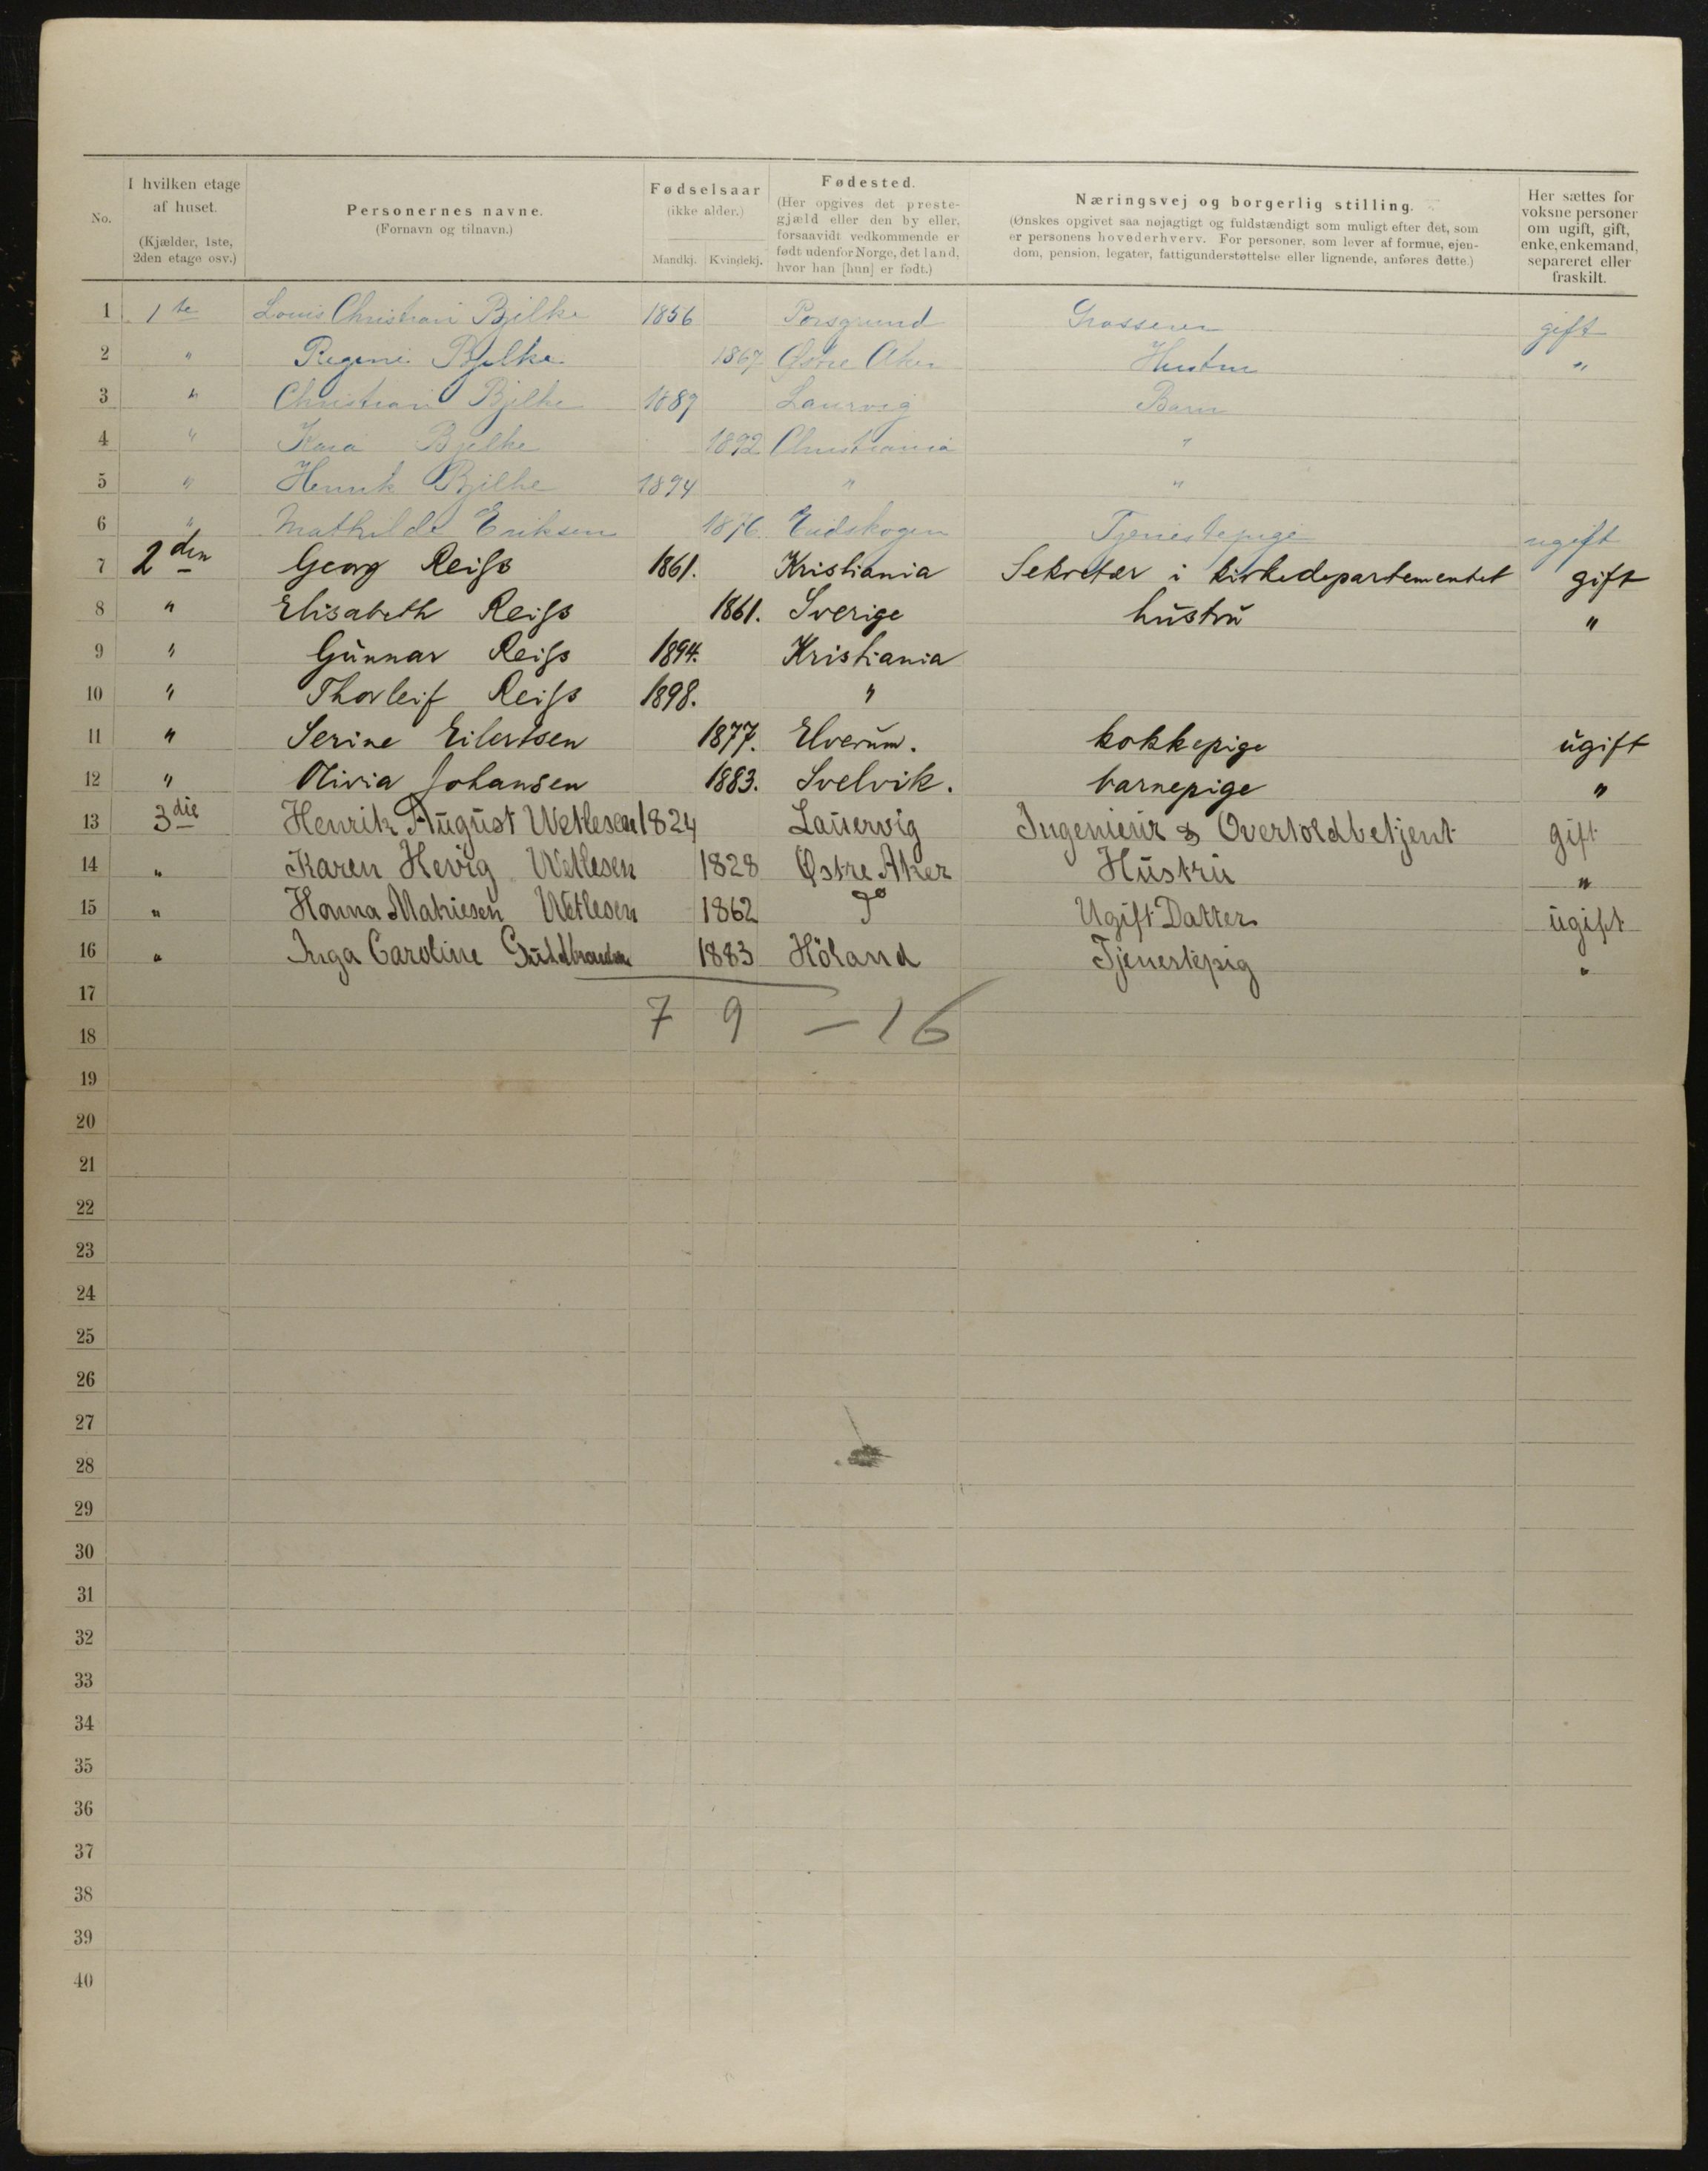 No.
I hvilken etage af huset. (Kjælder, 1ste, 2den etage osv.)
Personernes navne. (Fornavn og tilnavn.)
Fødselsaar (ikke alder.) Mandkj. Kvindekj.
Fødested. (Her opgives det prestegjæld eller den by eller, forsaavidt vedkommende er født udenfor Norge, det land, hvor han [hun] er født.)
Næringsvej og borgerlig stilling. (Ønskes opgivet saa nøjagtigt og fuldstændigt som muligt efter det, som er personens hovederhverv. For personer, som lever af formue, ejendom, pension, legater, fattigunderstøttelse eller lignende, anføres dette.)
Her sættes for voksne personer om ugift, gift, enke, enkemand, separeret eller fraskilt.
1 1ste Louis Christian Bjelke 1856 Porsgrund Grosserer gift
2 " Regine Bjelke 1867 Østre Aker Hustru "
3 " Christian Bjelke 1889 Laurvig Barn
4 " Bjelke 1892 Christiania "
5 " Henrik Bjelke 1894 " "
6 " Mathilde Eriksen 1876 Eidskogen Tjenestepige ugift
7 2den Georg Reiss 1861. Kristiania Sekretær i kirkedepartementet gift
8 " Elisabeth Reiss 1861. Sverige hustru "
9 " Gunnar Reiss 1894. Kristiania
10 " Thorleif Reiss 1898. "
11 " Serine Eilertsen 1877. Elverum. kokkepige ugift
12 " Olivia Johansen 1883. Svelvik. barnepige "
13 3die Henrik August Wetlesen 1824 Laurvig Ingeniör & Overtoldbetjent gift
14 " Karen Hevig Wetlesen 1828 Østre Aker Hustru "
15 " Hanna Mathiesen Wetlesen 1862 do Ugift Datter ugift
16 " Inga Caroline Guldbrandsen 1883 Höland Tjenestepig "
17
7 9 – 16
18
19
20
21
22
23
24
25
26
27
28
29
30
31
32
33
34
35
36
37
38
39
40